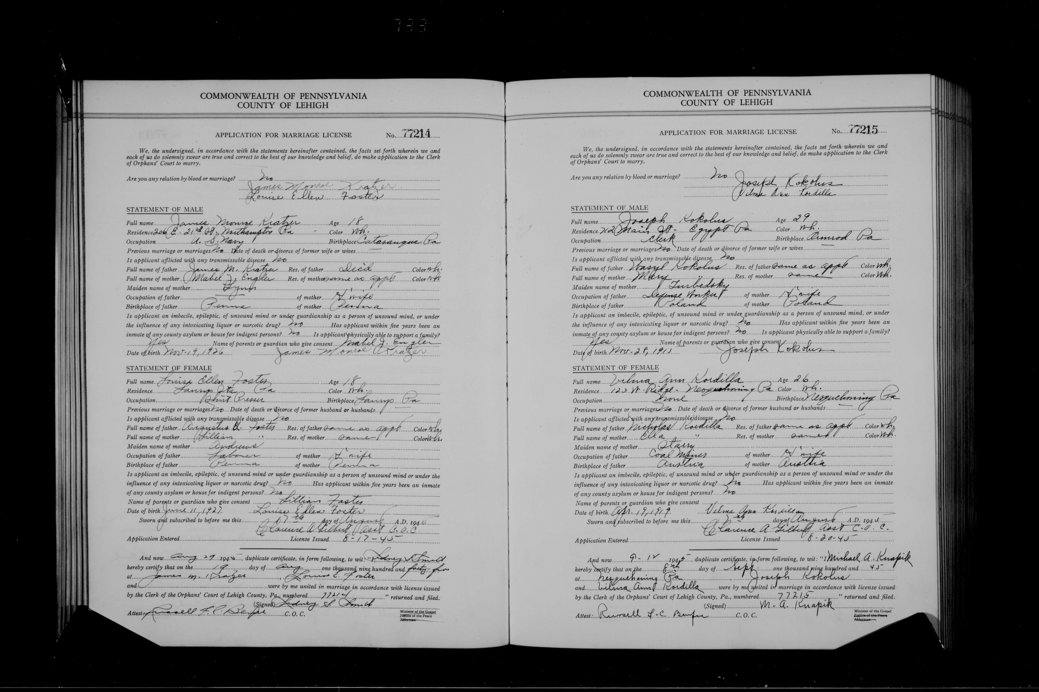 COMMONWEALTH OF PENNSYLVANIA
COUNTY OF LEHIGH
APPLICATION FOR MARRIAGE LICENSE No. 77214
We, the undersigned, in accordance with the statements hereinafter contained, the facts set forth wherein we and
each of us do solemnly swear are true and correct to the best of our knowledge and belief, do make application to the Clerk
of Orphans' Court to marry.
Are you any relation by blood or marriage? No
James Monroe Kratzer
Louise Ellen Foster
STATEMENT OF MALE
Full name James Monroe Kratzer Age 18
Residence 206 E. 21st St., Northampton Pa Color Wh.
Occupation U. S. Navy Birthplace Catasauqua Pa
Previous marriage or marriages No Date of death or divorce of former wife or wives
Is applicant afflicted with any transmissible disease No
Full name of father James M. Kratzer Res. of father Dec'd Color Wh.
Full name of mother Mabel J. Engler Res. of mother same as applt Color Wh.
Maiden name of mother
Occupation of father of mother H'wife
Birthplace of father Penna of mother Penna
Is applicant an imbecile, epileptic, of unsound mind or under guardianship as a person of unsound mind, or under
the influence of any intoxicating liquor or narcotic drug? No Has applicant within five years been an
inmate of any county asylum or house for indigent persons? No Is applicant physically able to support a family?
Yes Name of parents or guardian who give consent Mabel J. Engler
Date of birth Nov. 19, 1926 James Monroe Kratzer
STATEMENT OF FEMALE
Full name Louise Ellen Foster Age 18
Residence Laurys Sta. Pa Color Wh.
Occupation Shirt Presser Birthplace Laurys Pa
Previous marriage or marriages No Date of death or divorce of former husband or husbands
Is applicant afflicted with any transmissible disease No
Full name of father Augustus D Foster Res. of father same as applt Color Wh.
Full name of mother Lillian " Res. of mother same Color Wh.
Maiden name of mother Andrews
Occupation of father Laborer of mother H'wife
Birthplace of father Penna of mother Penna
Is applicant an imbecile, epileptic, of unsound mind or under guardianship as a person of unsound mind or under the
influence of any intoxicating liquor or narcotic drug? No Has applicant within five years been an inmate
of any county asylum or house for indigent persons? No
Name of parents or guardian who give consent Lillian Foster
Date of birth June 11, 1927 Louise Ellen Foster
Sworn and subscribed to before me this 17th day of August A.D. 1945
Clarence A Gilbert, Asst C.O.C.
Application Entered License Issued 8-17-45
And now Aug 29 1945, duplicate certificate, in form following, to wit: "I, Sidney S. Smith
hereby certify that on the 19 day of Aug one thousand nine hundred and forty five
at James M. Kratzer Louise E. Foster
and were by me united in marriage in accordance with license issued
by the Clerk of the Orphans' Court of Lehigh County, Pa., numbered 77214 " returned and filed.
(Signed) Sidney S. Smith
Attest Russell L. C. Benfer C.O.C.
Minister of the Gospel
Justice of the Peace
Alderman
COMMONWEALTH OF PENNSYLVANIA
COUNTY OF LEHIGH
APPLICATION FOR MARRIAGE LICENSE No. 77215
We, the undersigned, in accordance with the statements hereinafter contained, the facts set forth wherein we and
each of us do solemnly swear are true and correct to the best of our knowledge and belief, do make application to the Clerk
of Orphans' Court to marry.
Are you any relation by blood or marriage? No
Joseph Kokolus
Velma Ann Kordilla
STATEMENT OF MALE
Full name Joseph Kokolus Age 29
Residence Main St. - Egypt Pa Color Wh.
Occupation Clerk Birthplace Ormrod Pa
Previous marriage or marriages No Date of death or divorce of former wife or wives
Is applicant afflicted with any transmissible disease No
Full name of father Wasyl Kokolus Res. of father same as applt Color Wh.
Full name of mother Mary " Res. of mother same Color Wh.
Maiden name of mother
Occupation of father Defense Worker of mother H'wife
Birthplace of father Poland of mother Poland
Is applicant an imbecile, epileptic, of unsound mind or under guardianship as a person of unsound mind, or under
the influence of any intoxicating liquor or narcotic drug? No Has applicant within five years been an
inmate of any county asylum or house for indigent persons? No Is applicant physically able to support a family?
Yes Name of parents or guardian who give consent
Date of birth Nov. 28, 1915 Joseph Kokolus
STATEMENT OF FEMALE
Full name Velma Ann Kordilla Age 26
Residence 120 W. Ridge - Nesquehoning Pa Color Wh.
Occupation None Birthplace Nesquehoning Pa
Previous marriage or marriages No Date of death or divorce of former husband or husbands
Is applicant afflicted with any transmissible disease No
Full name of father Nicholas Kordilla Res. of father same as applt Color Wh.
Full name of mother Eva " Res. of mother same Color Wh.
Maiden name of mother
Occupation of father Coal Miner of mother H'wife
Birthplace of father Austria of mother Austria
Is applicant an imbecile, epileptic, of unsound mind or under guardianship as a person of unsound mind or under the
influence of any intoxicating liquor or narcotic drug? No Has applicant within five years been an inmate
of any county asylum or house for indigent persons? No
Name of parents or guardian who give consent
Date of birth Apr. 19, 1919 Velma Ann Kordilla
Sworn and subscribed to before me this day of August A.D. 1945
Clarence A Gilbert, Asst C.O.C.
Application Entered License Issued 8-20-45
And now 9-12 1945, duplicate certificate, in form following, to wit: "I, Michael A. Knapik
hereby certify that on the 8th day of Sept. one thousand nine hundred and 45
at Nesquehoning Pa Joseph Kokolus
and Velma Ann Kordilla were by me united in marriage in accordance with license issued
by the Clerk of the Orphans' Court of Lehigh County, Pa., numbered 77215 " returned and filed.
(Signed) M. A. Knapik
Attest Russell L. C. Benfer C.O.C.
Minister of the Gospel
Justice of the Peace
Alderman